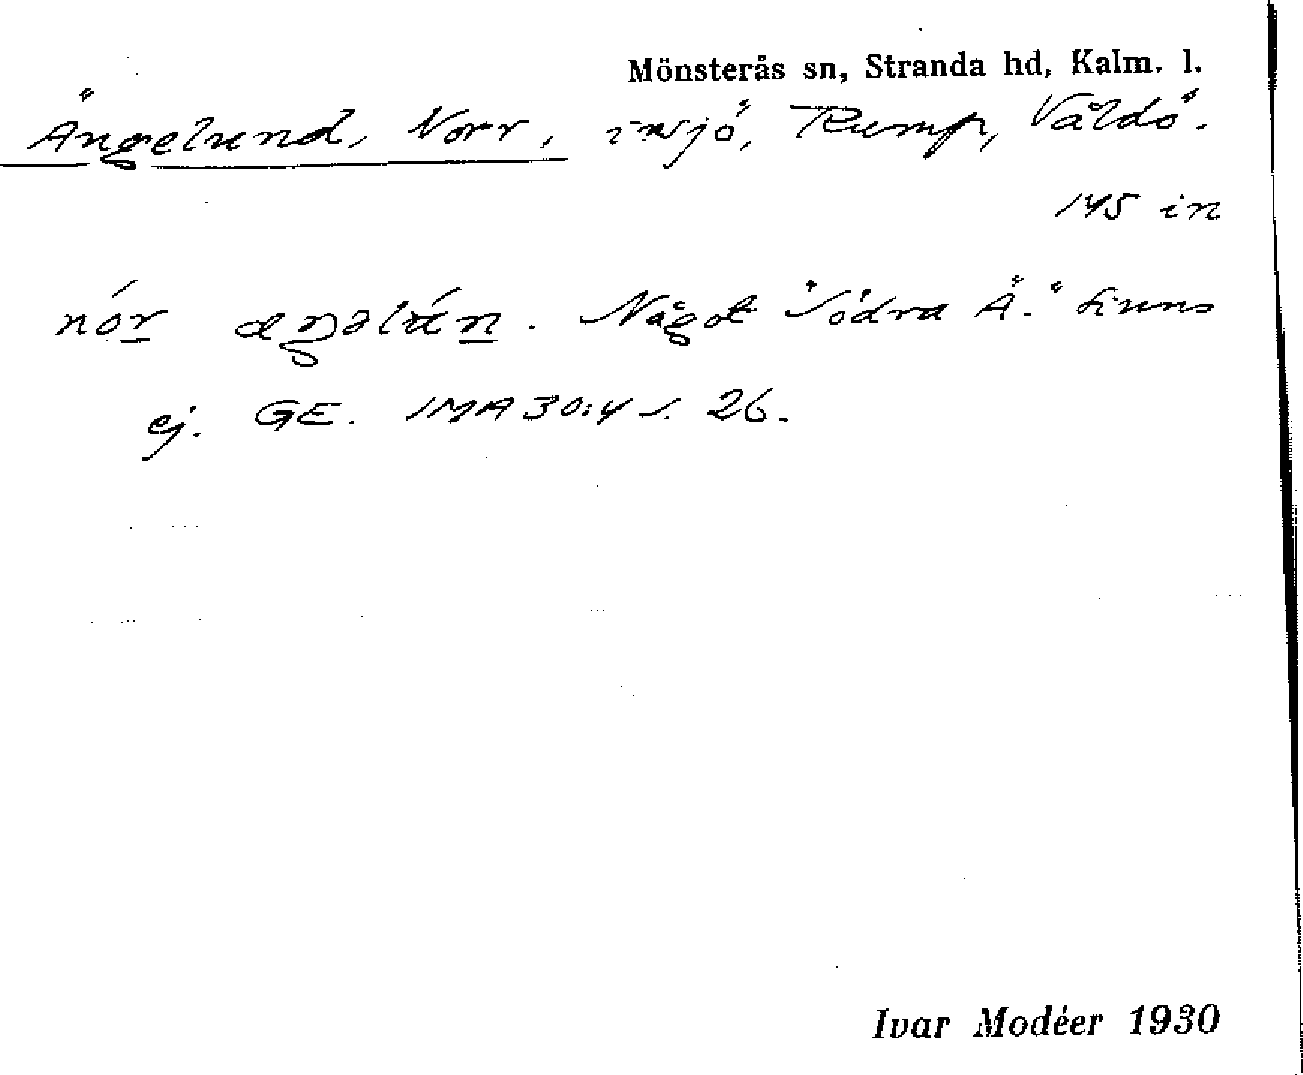 Mönsterås sn, Stranda hd, Kalm. l.
Ängelund, Norr, insjö, Rump, Våldö.
145 in
nór aŋəlún. Något "Södra Ä." finns
ej. GE. IMA30:4 s. 26.
Ivar Modéer 1930